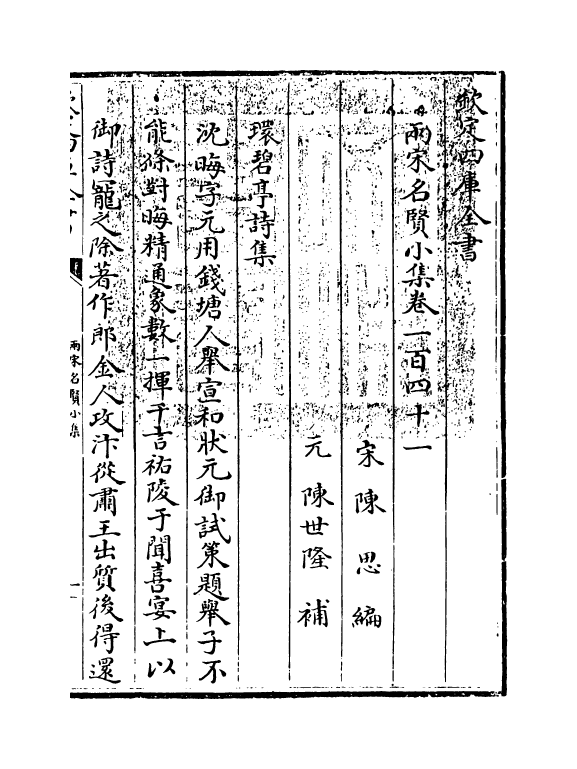 欽定四庫全書
兩宋名賢小集卷一百四十一
宋陳思編
元陳世隆補
環碧亭詩集
沈晦字元用錢塘人舉宣和狀元御試策題舉子不
能條對晦精通象數一揮千言祐陵于聞喜宴上以
御詩寵之除著作郎金人攻汴從肅王出質後得還
兩宋名賢小集
一